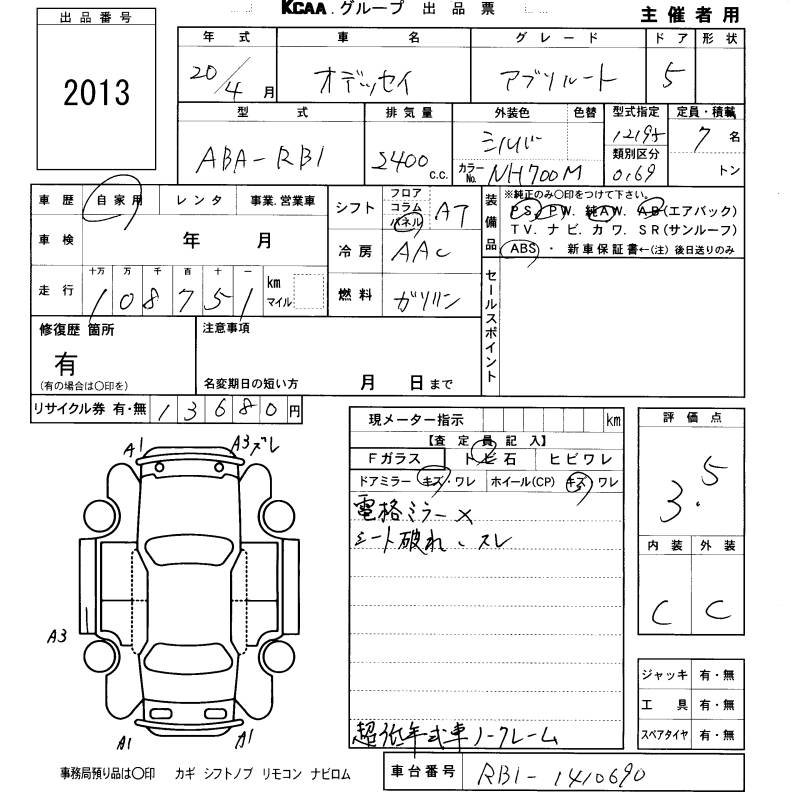 KCAA.グループ 出品票
主催者用
出品番号
2013
年式 車名 グレード ドア 形状
20/4月 オデッセイ アブソルート 5
型式 排気量 外装色 色替 型式指定 定員・積載
ABA-RB1 2400c.c. シルバー 12195 7名
カラーNo. NH700M 類別区分 0169 トン
車歴 自家用 レンタ 事業.営業車
車検 年 月
走行 十万 万 千 百 十 一
108751 km マイル
シフト フロア コラム パネル AT
冷房 AAC
燃料 ガソリン
装備品
※純正のみ○印をつけて下さい。
PS. PW. 純AW. AB(エアバック)
TV. ナビ. カワ. SR(サンルーフ)
ABS ・ 新車保証書←(注)後日送りのみ
セールスポイント
修復歴 箇所
有
(有の場合は○印を)
注意事項
名変期日の短い方 月 日まで
リサイクル券 有・無 13680円
現メーター指示 km
【査定員記入】
Fガラス トビ石 ヒビワレ
ドアミラー キズ・ワレ ホイール(CP) キズ ワレ
電格ミラー×
シート破れ、スレ
超低年式車ノークレーム
評価点
3.5
内装 外装
C C
ジャッキ 有・無
工具 有・無
スペアタイヤ 有・無
A1 A3ズレ
A3
A1 A1
事務局預り品は○印 カギ シフトノブ リモコン ナビロム
車台番号 RB1-1410690